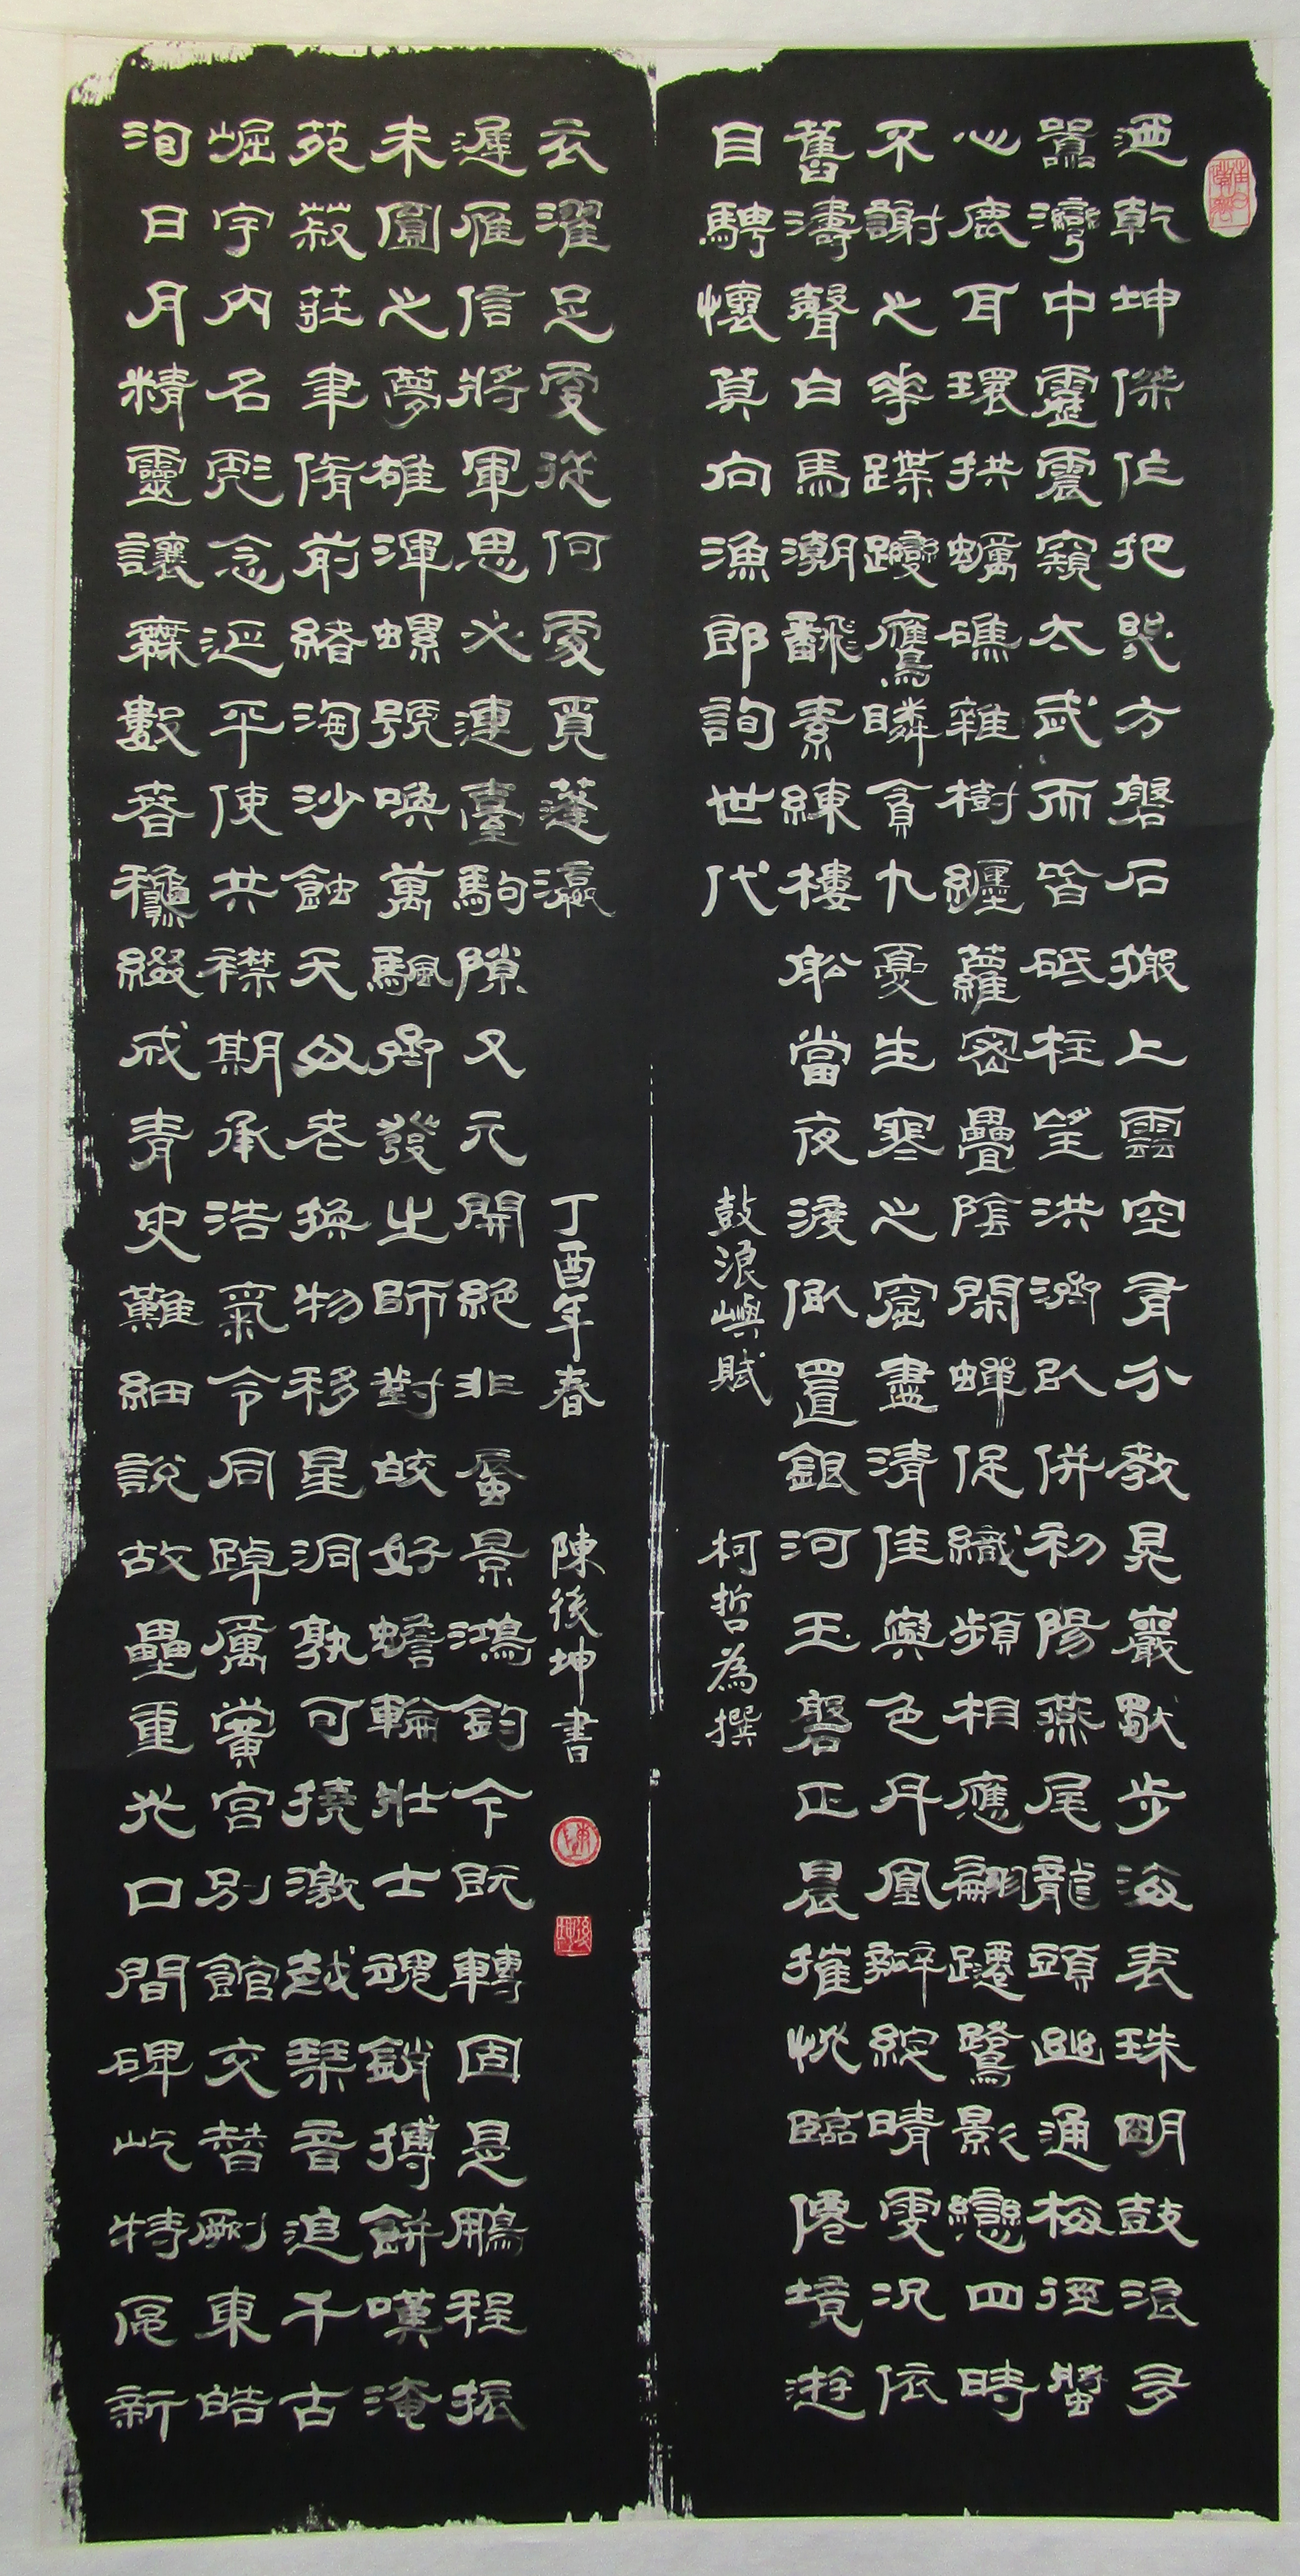 迺乾坤傑作把咫方磐石搬上雲空有分教晃巖獸步海表珠明鼓浪多
囂灣中靈震窺太武而皆砥柱望洪濟以併初陽燕尾龍頭幽通梅徑蟹
心鹿耳環拱蠣礁雜樹纏蘿密疊陰閑蟬促織頻相應翩躚鷺影戀四時
不謝之華蹀躞鷹瞵貪九夏生寒之窟盡清佳與色丹凰辦綻晴雯況依
舊濤聲白馬潮飜素練樓船當夜渡似置銀河玉磬正晨摧恍臨僊境遊
目騁懷莫向漁郎詢世代
鼓浪嶼賦 柯哲為撰
洵日月精靈讓無數春穐綴成青史難細說故壘重光口間碑屹特區新
崛宇內名彪念平使共襟期承浩氣令同踔厲黌宮別館交替東皓
苑菽莊聿脩前緒淘沙蝕天公老換物移星洞孰可撓激越琴音追千古
未圓之夢雄渾螺號喚萬颿齊發之師對皎好蟾輪壯士魂銷搏餅嘆淹
遲雁信將軍思必連臺駒隙又元開絕非蜃景鴻鈞今既轉固是鵬程振
衣濯足處從何處覓蓬瀛
丁酉年春 陳後坤書